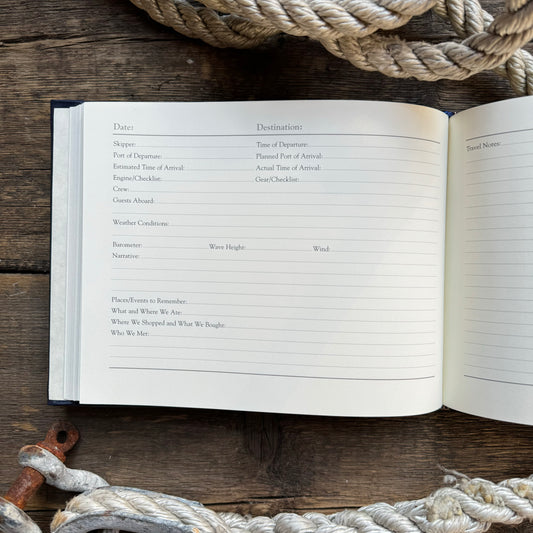 Date: Destination:
Skipper: Time of Departure:
Port of Departure: Planned Port of Arrival:
Estimated Time of Arrival: Actual Time of Arrival:
Engine/Checklist: Gear/Checklist:
Crew:
Guests Aboard:
Weather Conditions:
Barometer: Wave Height: Wind:
Narrative:
Places/Events to Remember:
What and Where We Ate:
Where We Shopped and What We Bought:
Who We Met:
Travel Notes: